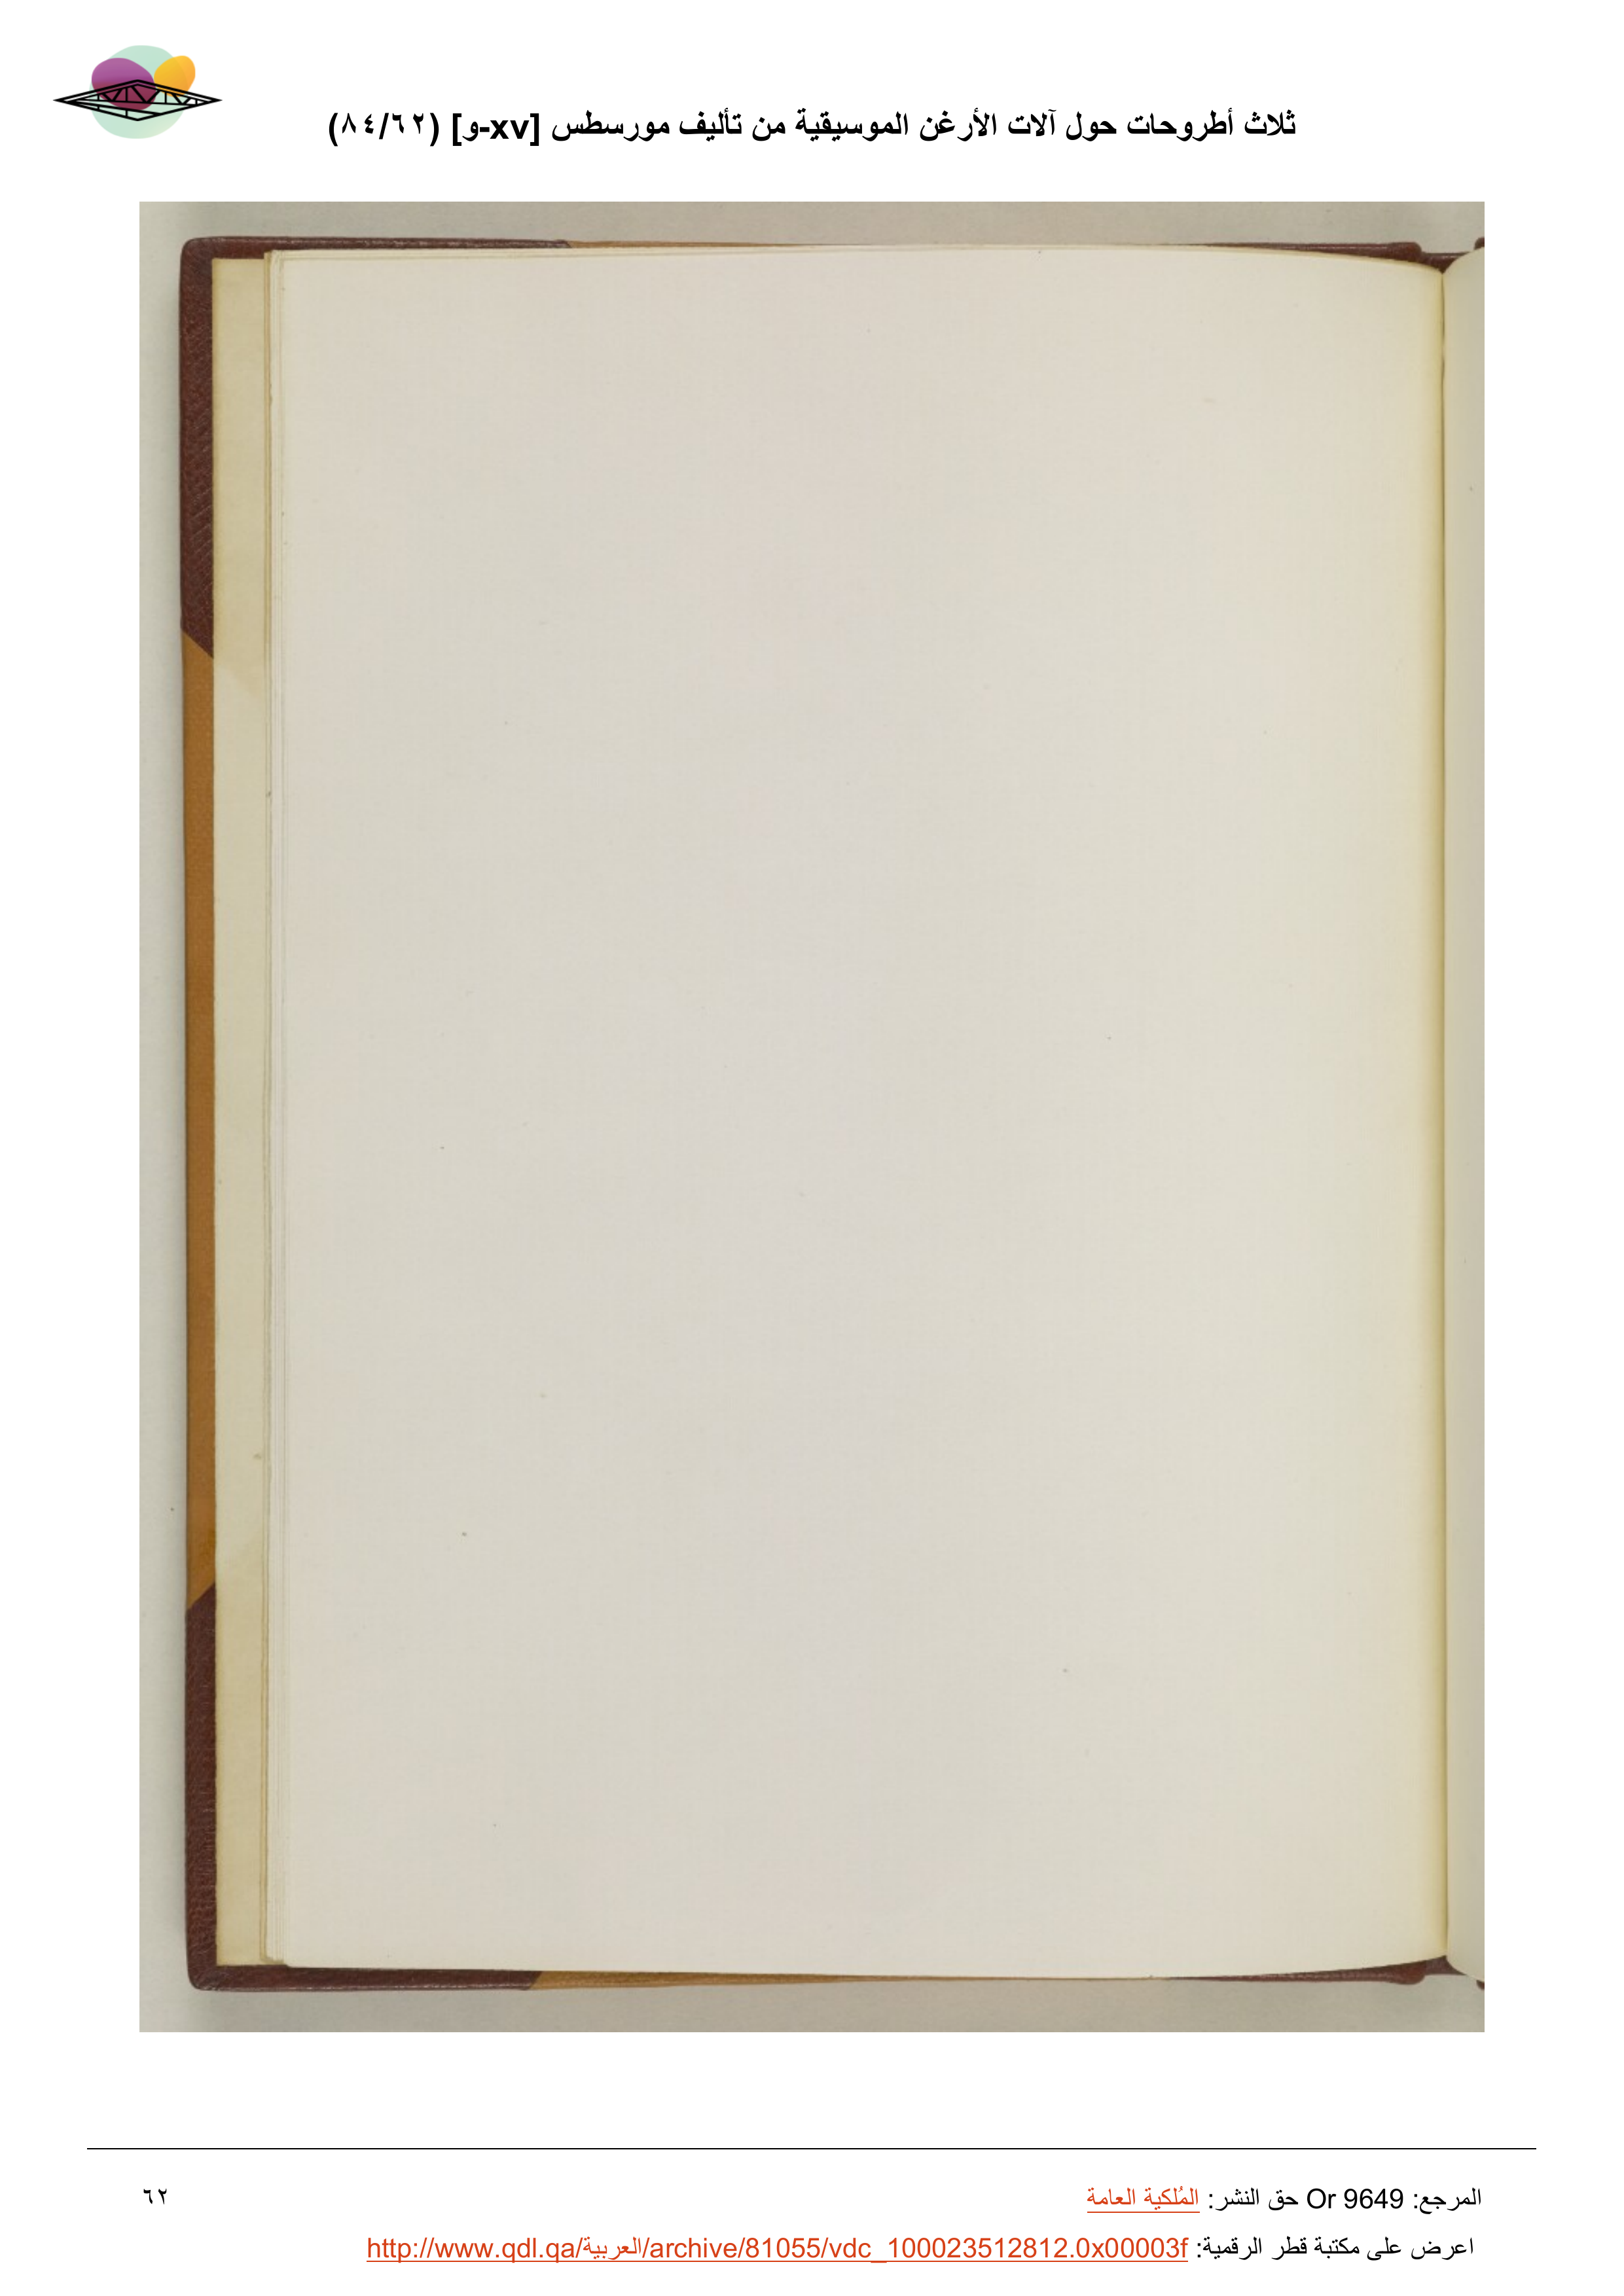 ثلاث أطروحات حول آلات الأرغن الموسيقية من تأليف مورسطس [xv-و] (٨٤/٦٢)
المرجع: Or 9649 حق النشر: المُلكية العامة
٦٢
اعرض على مكتبة قطر الرقمية: http://www.qdl.qa/العربية/archive/81055/vdc_100023512812.0x00003f